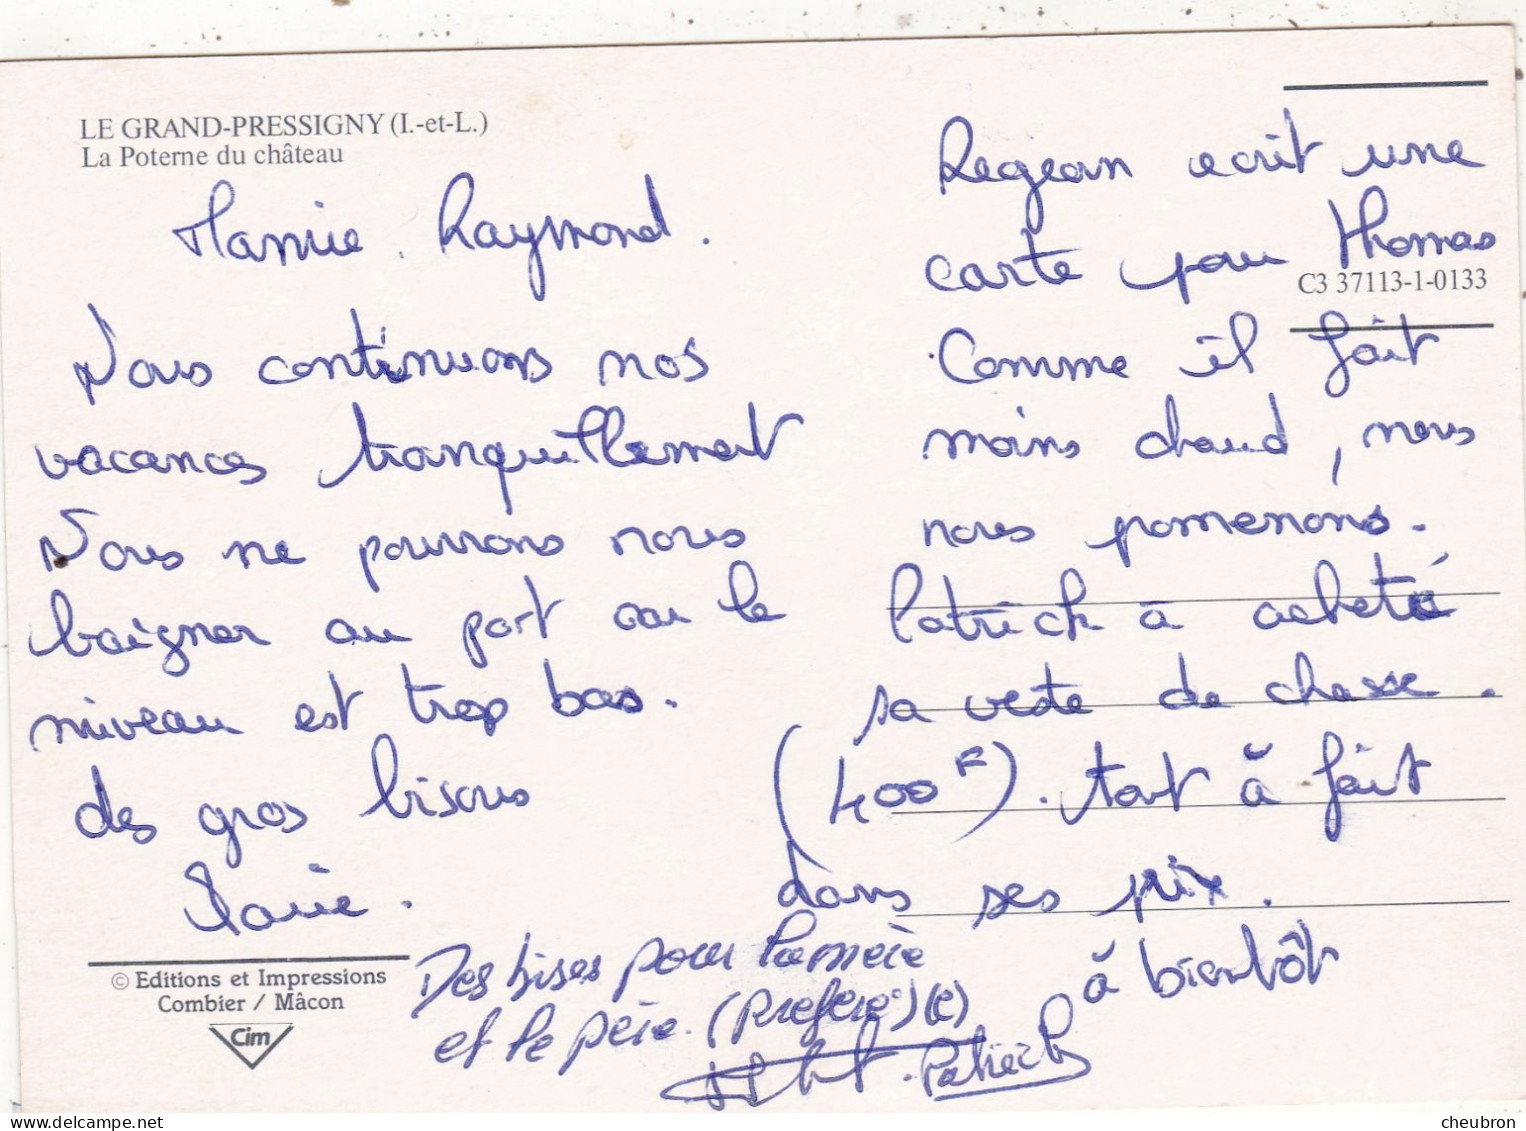 LE GRAND-PRESSIGNY (I.-et-L.)
La Poterne du château
Mamie. Raymond.
Nous continuons nos
vacances tranquillement
Nous ne pourrons nous
baigner au port car le
niveau est trop bas.
des gros bisous
Marie.
© Editions et Impressions
Combier / Mâcon
Cim
Regean ecrit une
carte pour Thomas
C3 37113-1-0133
Comme il fait
moins chaud, nous
nous pomenons.
Patrick à acheté
sa veste de chasse.
(400F). tout à fait
dans ses prix.
à bientôt
Des bises pour la mère
et le père. (Préféré) (e)
Patrick
cheubron